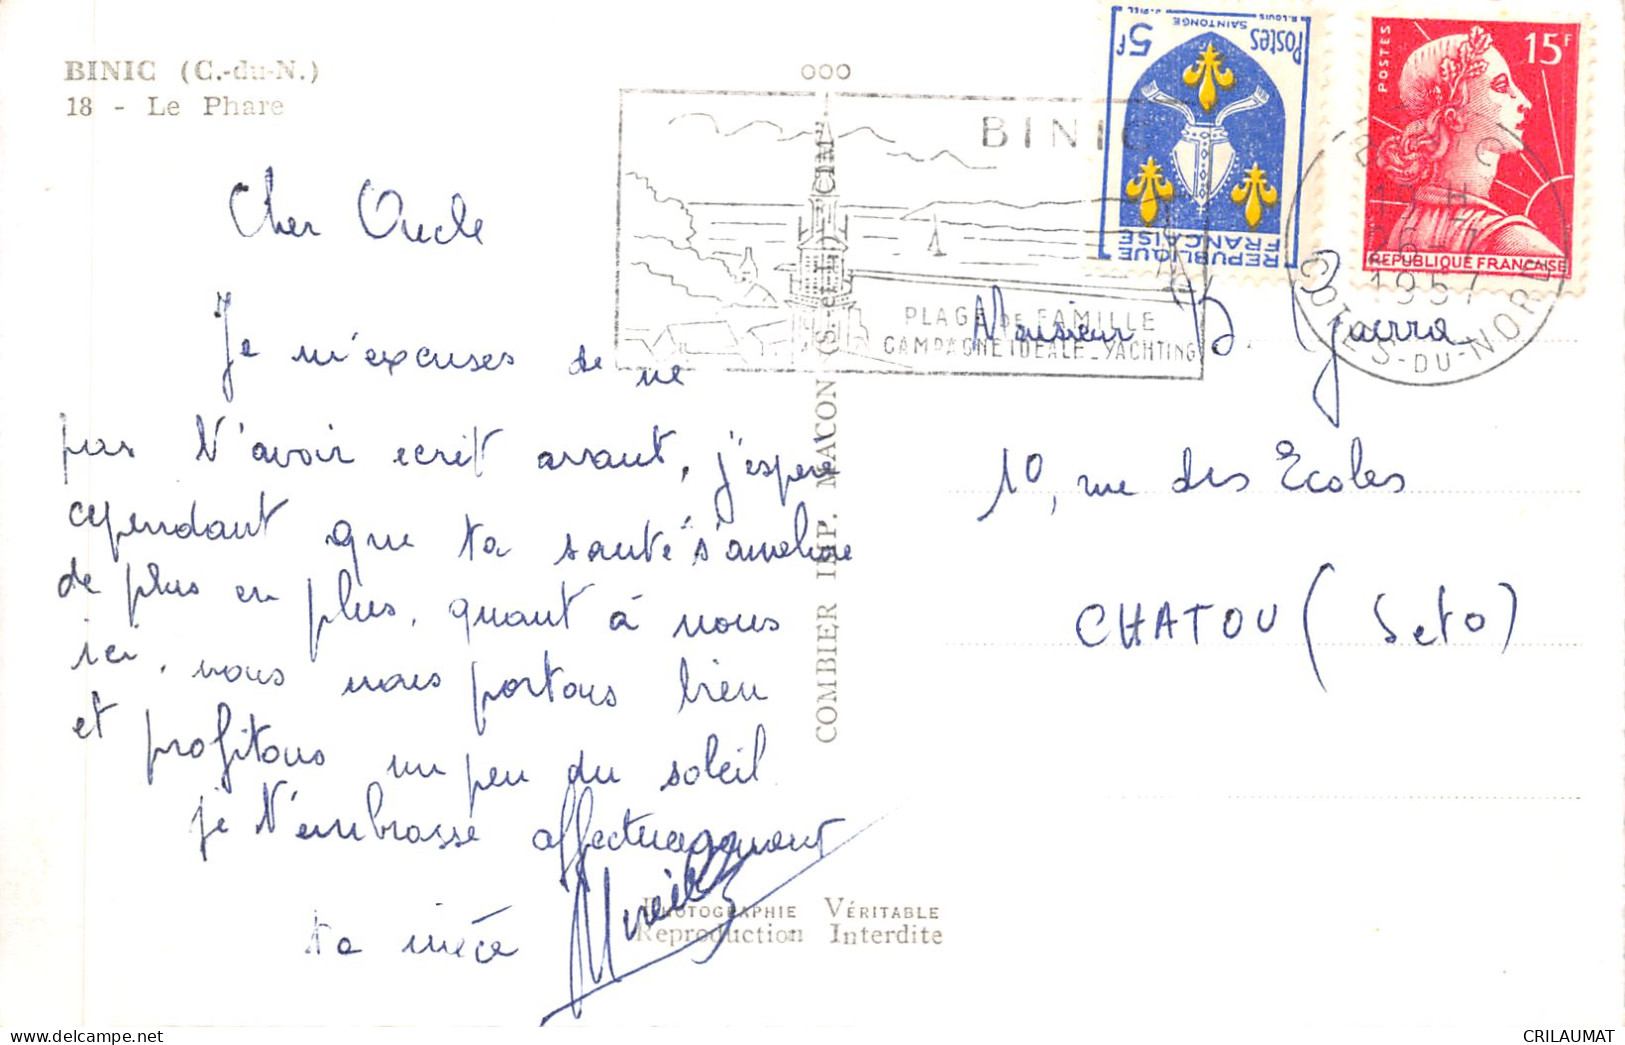 BINIC (C.-du-N.)
18 - Le Phare
Cher Oncle
Je m'excuses de ne
pas t'avoir ecrit avant, j'espère
cependant que ta santé s'améliore
de plus en plus, quant à nous
ici, nous nous portons bien
et profitons un peu du soleil
je t'embrasse affectueusement
ta nièce Mireille
PHOTOGRAPHIE VÉRITABLE
Reproduction Interdite
COMBIER IMP. MACON (S.-et-L.) CIM
000
BINIC
PLAGE DE FAMILLE
CAMPAGNE IDEALE - YACHTING
5f Postes
SAINTONGE
REPUBLIQUE
FRANÇAISE
POSTES
15F
REPUBLIQUE FRANÇAISE
BINIC
26-7
1957
COTES-DU-NORD
Monsieur
10, rue des Ecoles
CHATOU (SetO)
CRILAUMAT